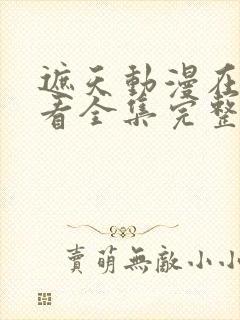 遮天動漫在
看全集完整
賣萌無敵小小